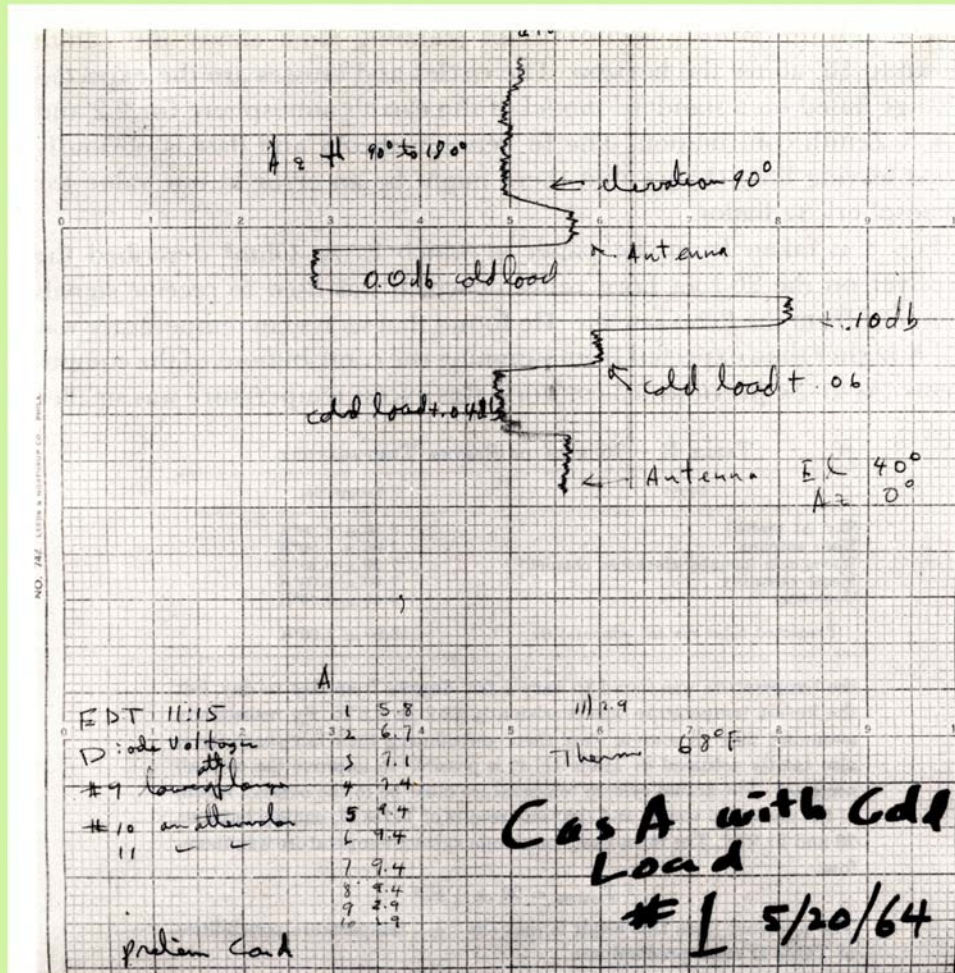 90° to 180°
← elevation 90°
0 1 2 3 4 5 6 7 8 9
Antenna
0.0db cold load
.10db
cold load + .06
cold load +.04db
← Antenna El 40°
Az 0°
NO. 742 LEEDS & NORTHRUP CO. PHILA.
A
EDT 11:15
Diode Voltages
#9 lower flange
#10 on attenuator
11
1 5.8
2 6.7
3 7.1
4 7.4
5 9.4
6 9.4
7 9.4
8 9.4
9 2.9
10 2.9
11) 2.9
Therm 68°F
Cas A with Cold
Load
#1 5/20/64